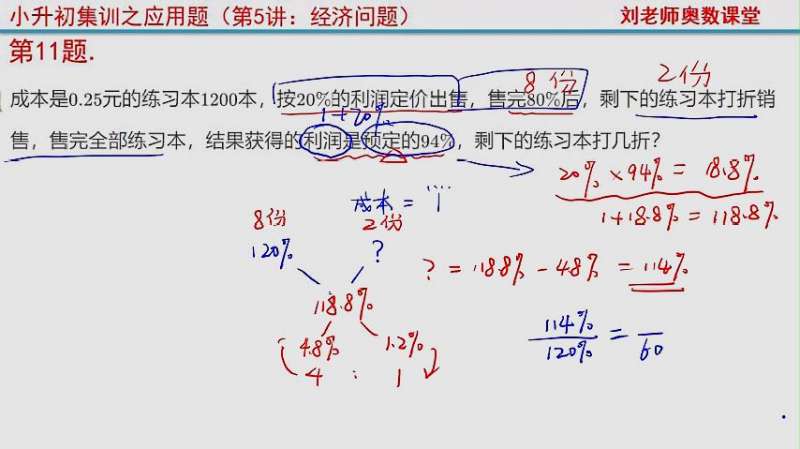 小升初集训之应用题（第5讲：经济问题） 刘老师奥数课堂
第11题.
8份 2份
成本是0.25元的练习本1200本，按20%的利润定价出售，售完80%后，剩下的练习本打折销
1+20%
售，售完全部练习本，结果获得的利润是预定的94%，剩下的练习本打几折？
20% × 94% = 18.8%
成本 = "1"
1+18.8% = 118.8%
8份 2份
120% ?
? = 118.8% - 4.8% = 114%
118.8%
114%/120% = /60
4.8% 1.2%
4 : 1